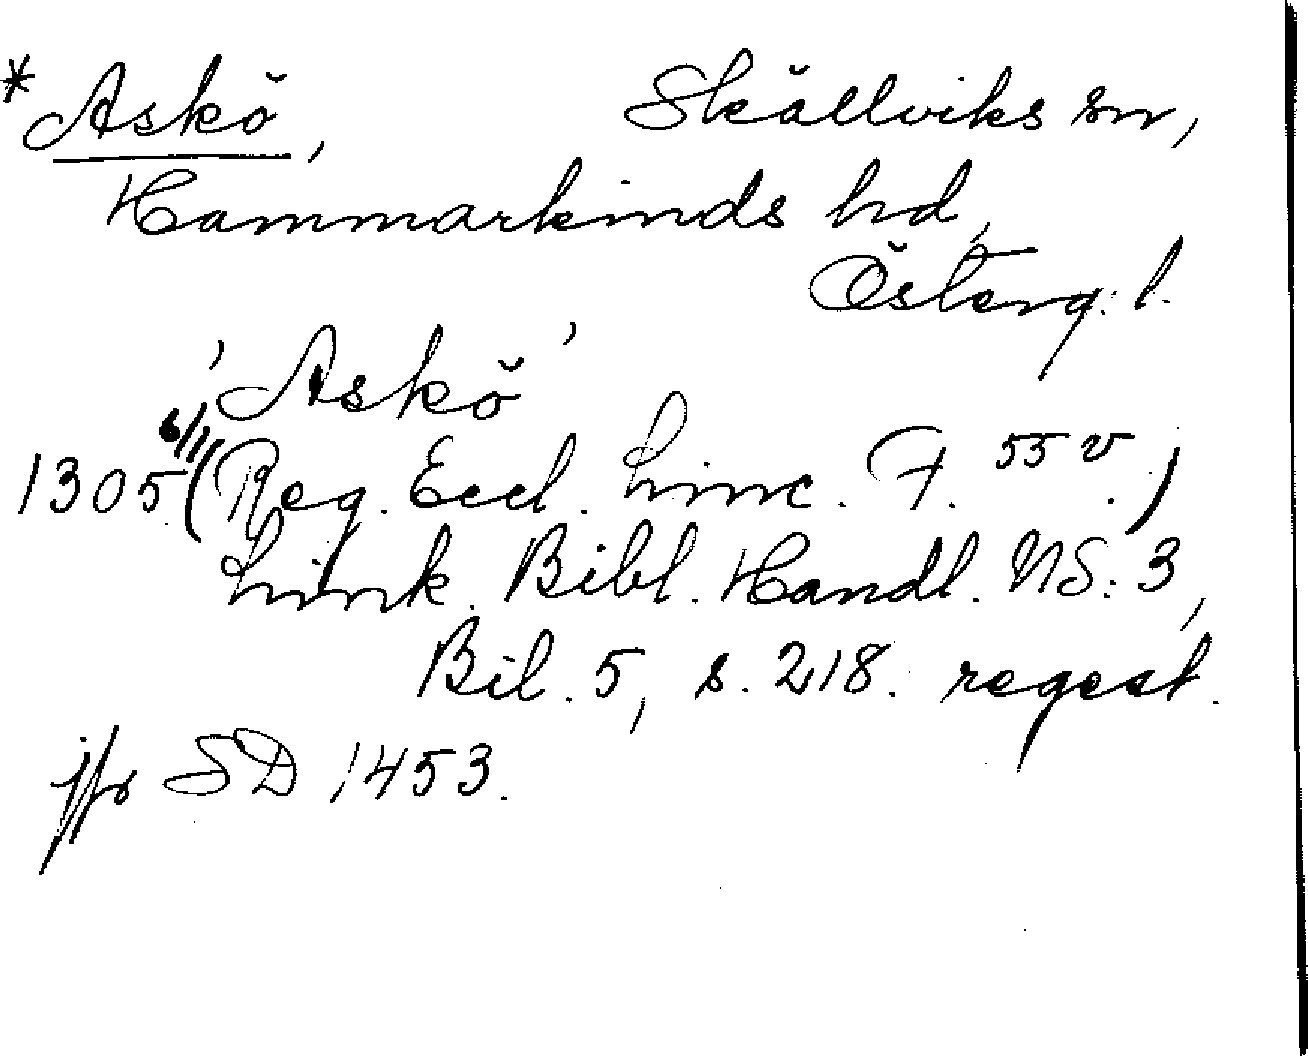 * Askö, Skällviks sn,
Hammarkinds hd,
Österg. l.
'Askö'
1305 6/11 (Reg. Eccl. Linc. F. 55 v.)
Link. Bibl. Handl. NS: 3,
Bil. 5, s. 218. regest.
jfr SD 1453.